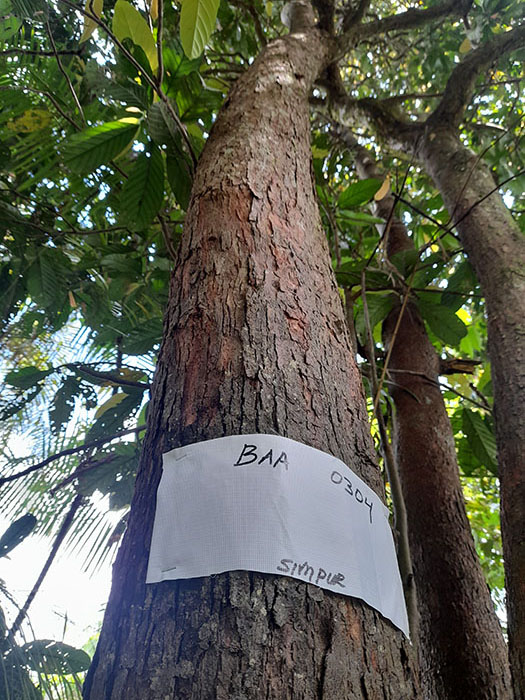 BAA 0304
SIMPUR